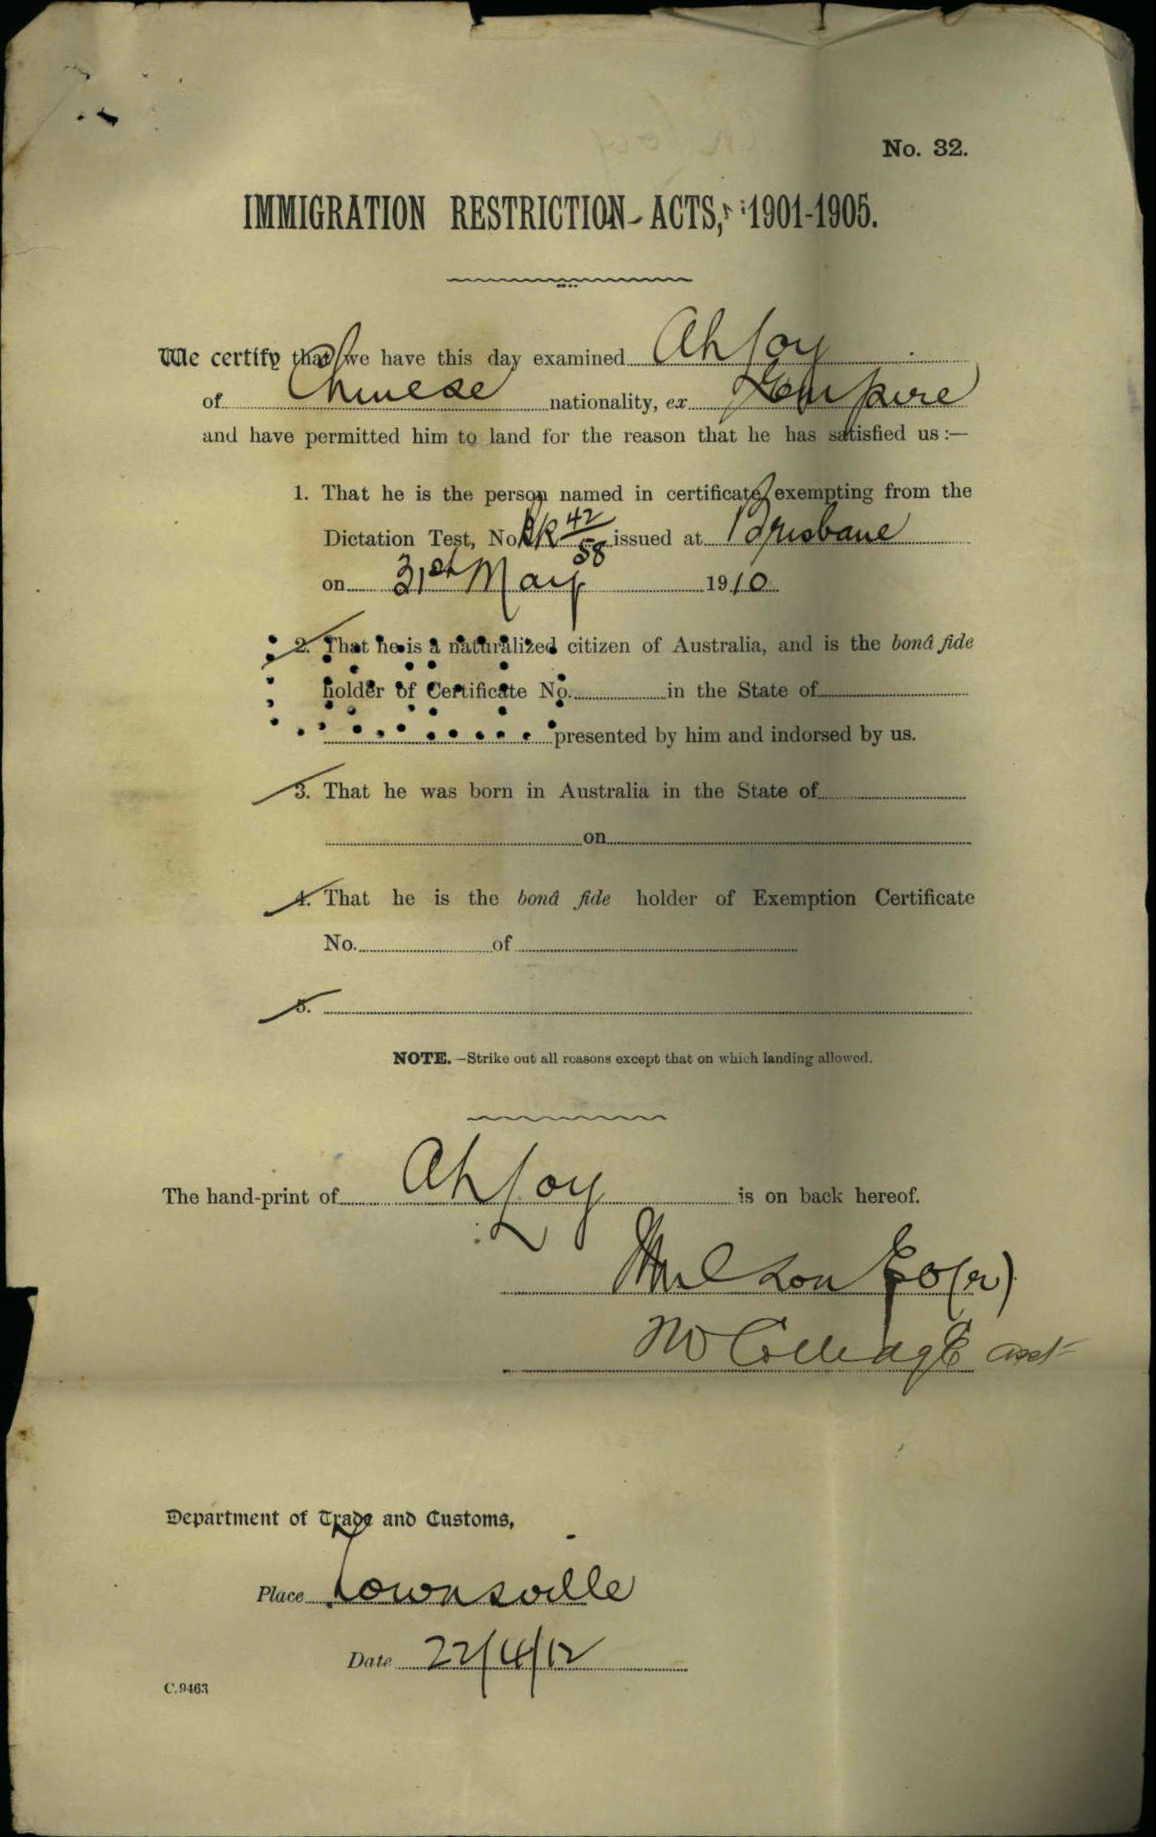 No. 32.
IMMIGRATION RESTRICTION ACTS, 1901-1905.
We certify that we have this day examined Ah Loy
of Chinese nationality, ex Empire
and have permitted him to land for the reason that he has satisfied us :—
1. That he is the person named in certificate exempting from the
Dictation Test, No. Bk 42/58 issued at Brisbane
on 31st May 1910
2. That he is a naturalized citizen of Australia, and is the bonâ fide
holder of Certificate No. in the State of
presented by him and indorsed by us.
3. That he was born in Australia in the State of
on
4. That he is the bonâ fide holder of Exemption Certificate
No. of
5.
NOTE.—Strike out all reasons except that on which landing allowed.
The hand-print of Ah Loy is on back hereof.
Department of Trade and Customs,
Place Townsville
Date 22/4/12
C.9463